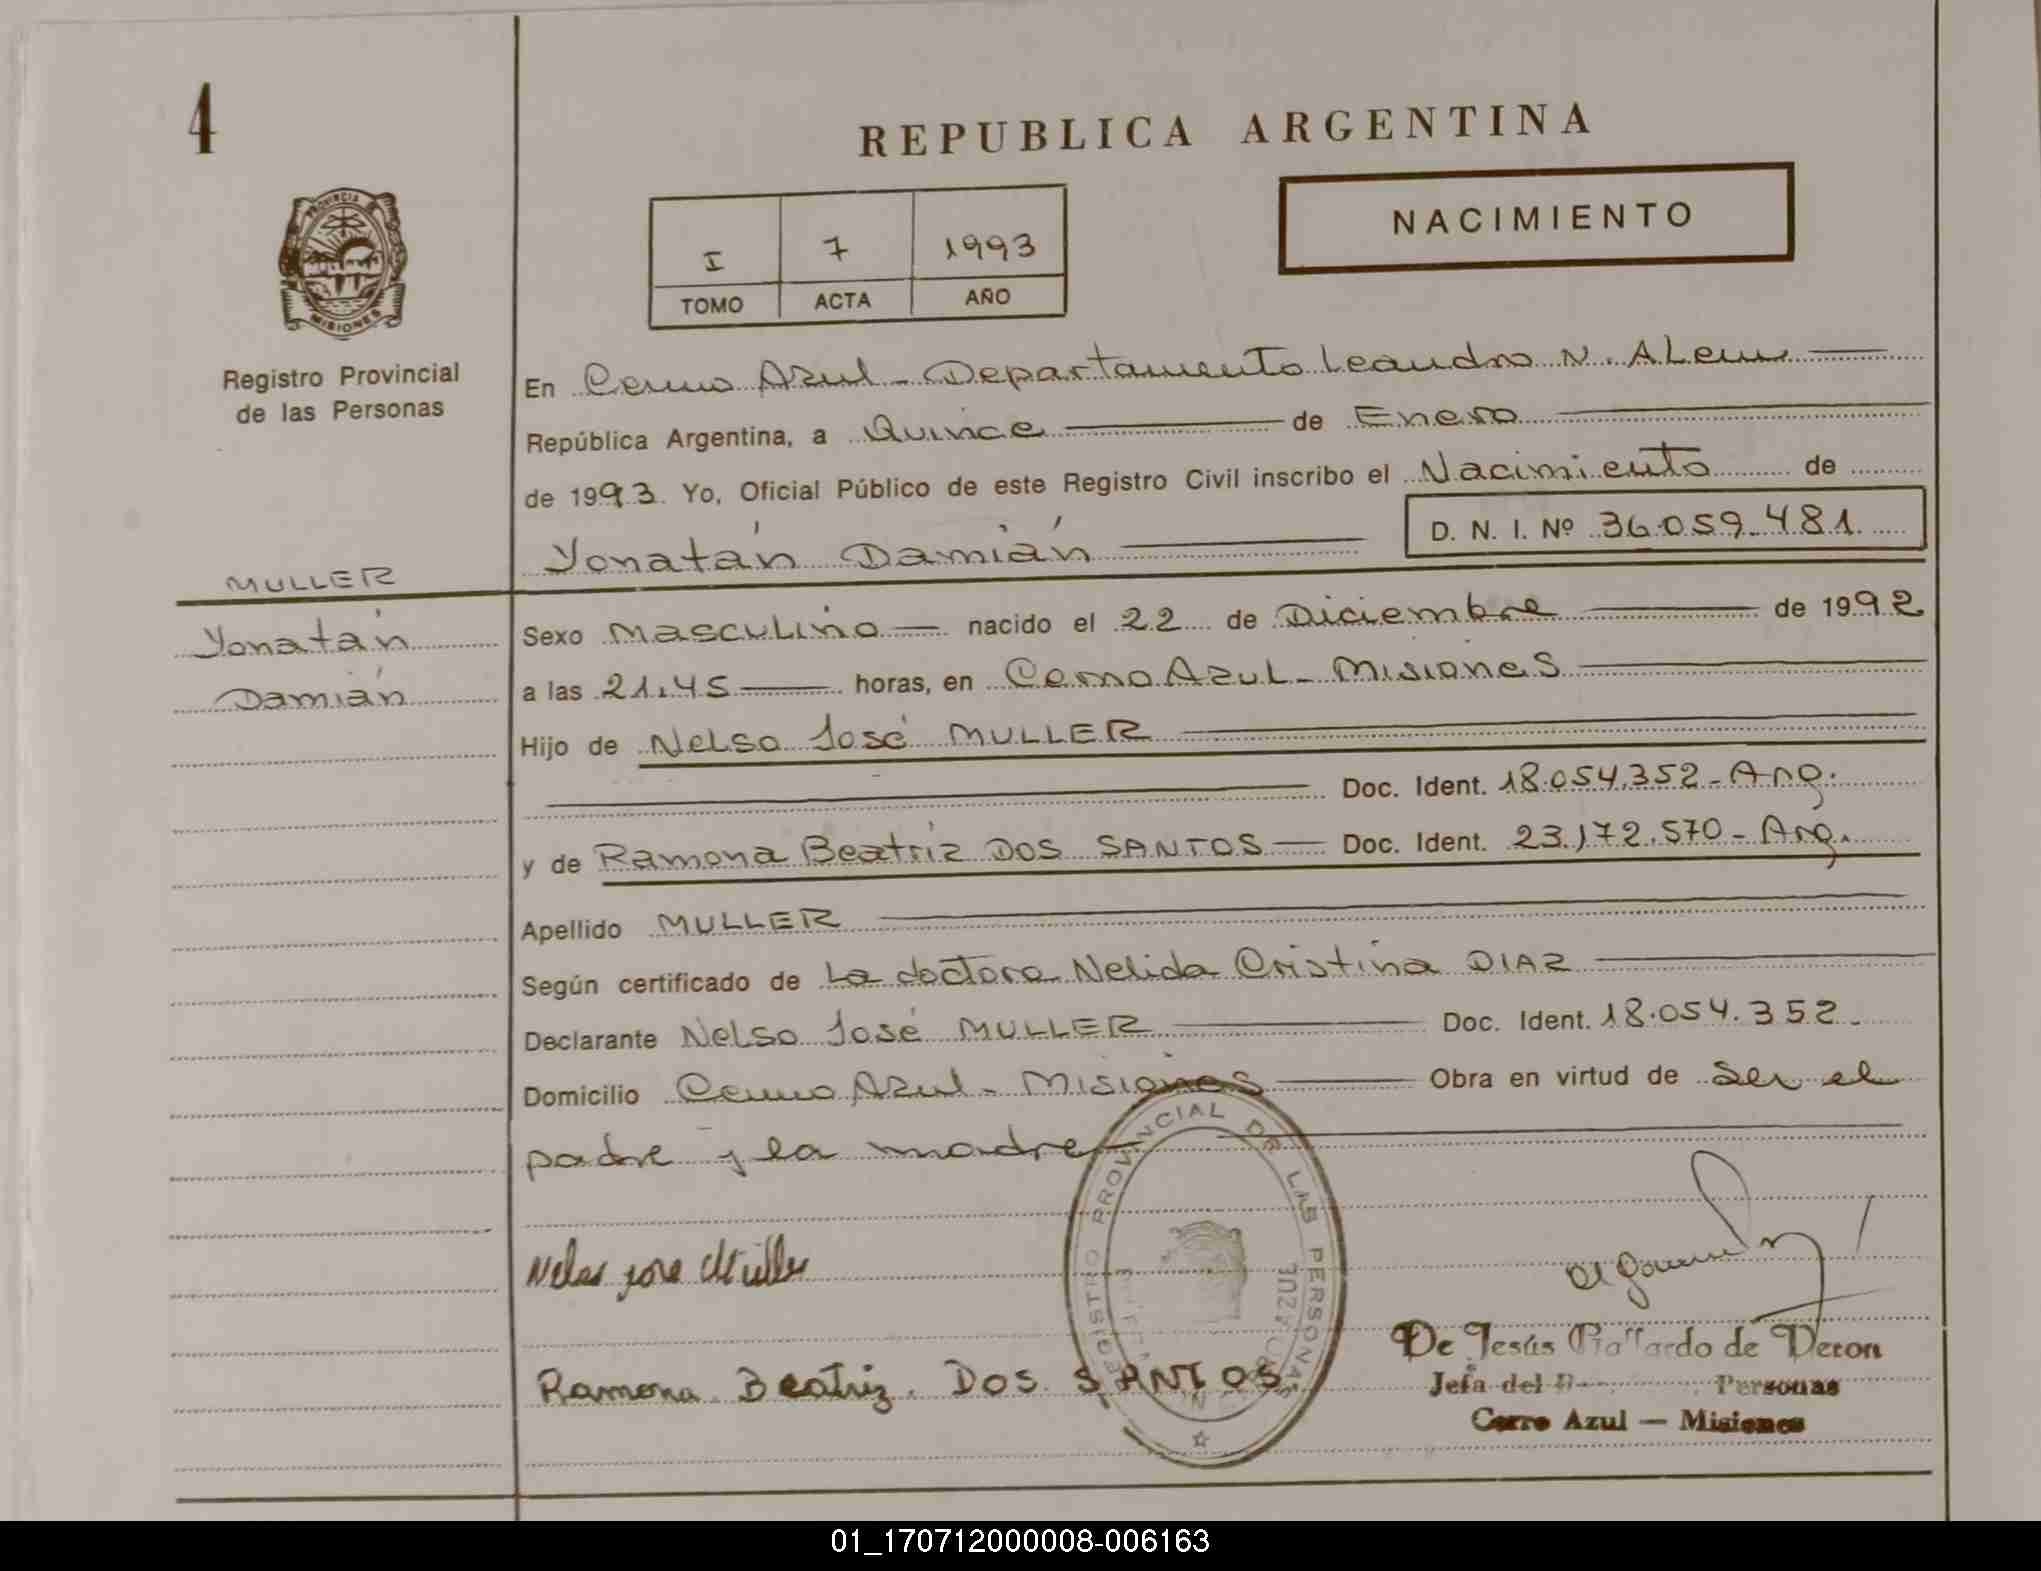 4
REPUBLICA ARGENTINA
NACIMIENTO
I 7 1993
TOMO ACTA AÑO
PROVINCIA DE
MISIONES
Registro Provincial
de las Personas
En Cerro Azul - Departamento Leandro N. ALem
República Argentina, a Quince de Enero
de 1993. Yo, Oficial Público de este Registro Civil inscribo el Nacimiento de
Yonatán Damián D. N. I. Nº 36.059.481.
MULLER
Yonatán
Damián
Sexo Masculino nacido el 22 de Diciembre de 1992
a las 21.45 horas, en Cerro Azul - Misiones
Hijo de Nelso José MULLER
Doc. Ident. 18.054.352 - Arg.
y de Ramona Beatriz DOS SANTOS Doc. Ident. 23.172.570 - Arg.
Apellido MULLER
Según certificado de La doctora Nelida Cristina DIAZ
Declarante Nelso José MULLER Doc. Ident. 18.054.352.
Domicilio Cerro Azul - Misiones Obra en virtud de ser el
padre y la madre
REGISTRO PROVINCIAL DE LAS PERSONAS
Ramona Beatriz DOS SANTOS
De Jesús Gallardo de Veron
Jefa del Personas
Cerro Azul — Misiones
01_170712000008-006163